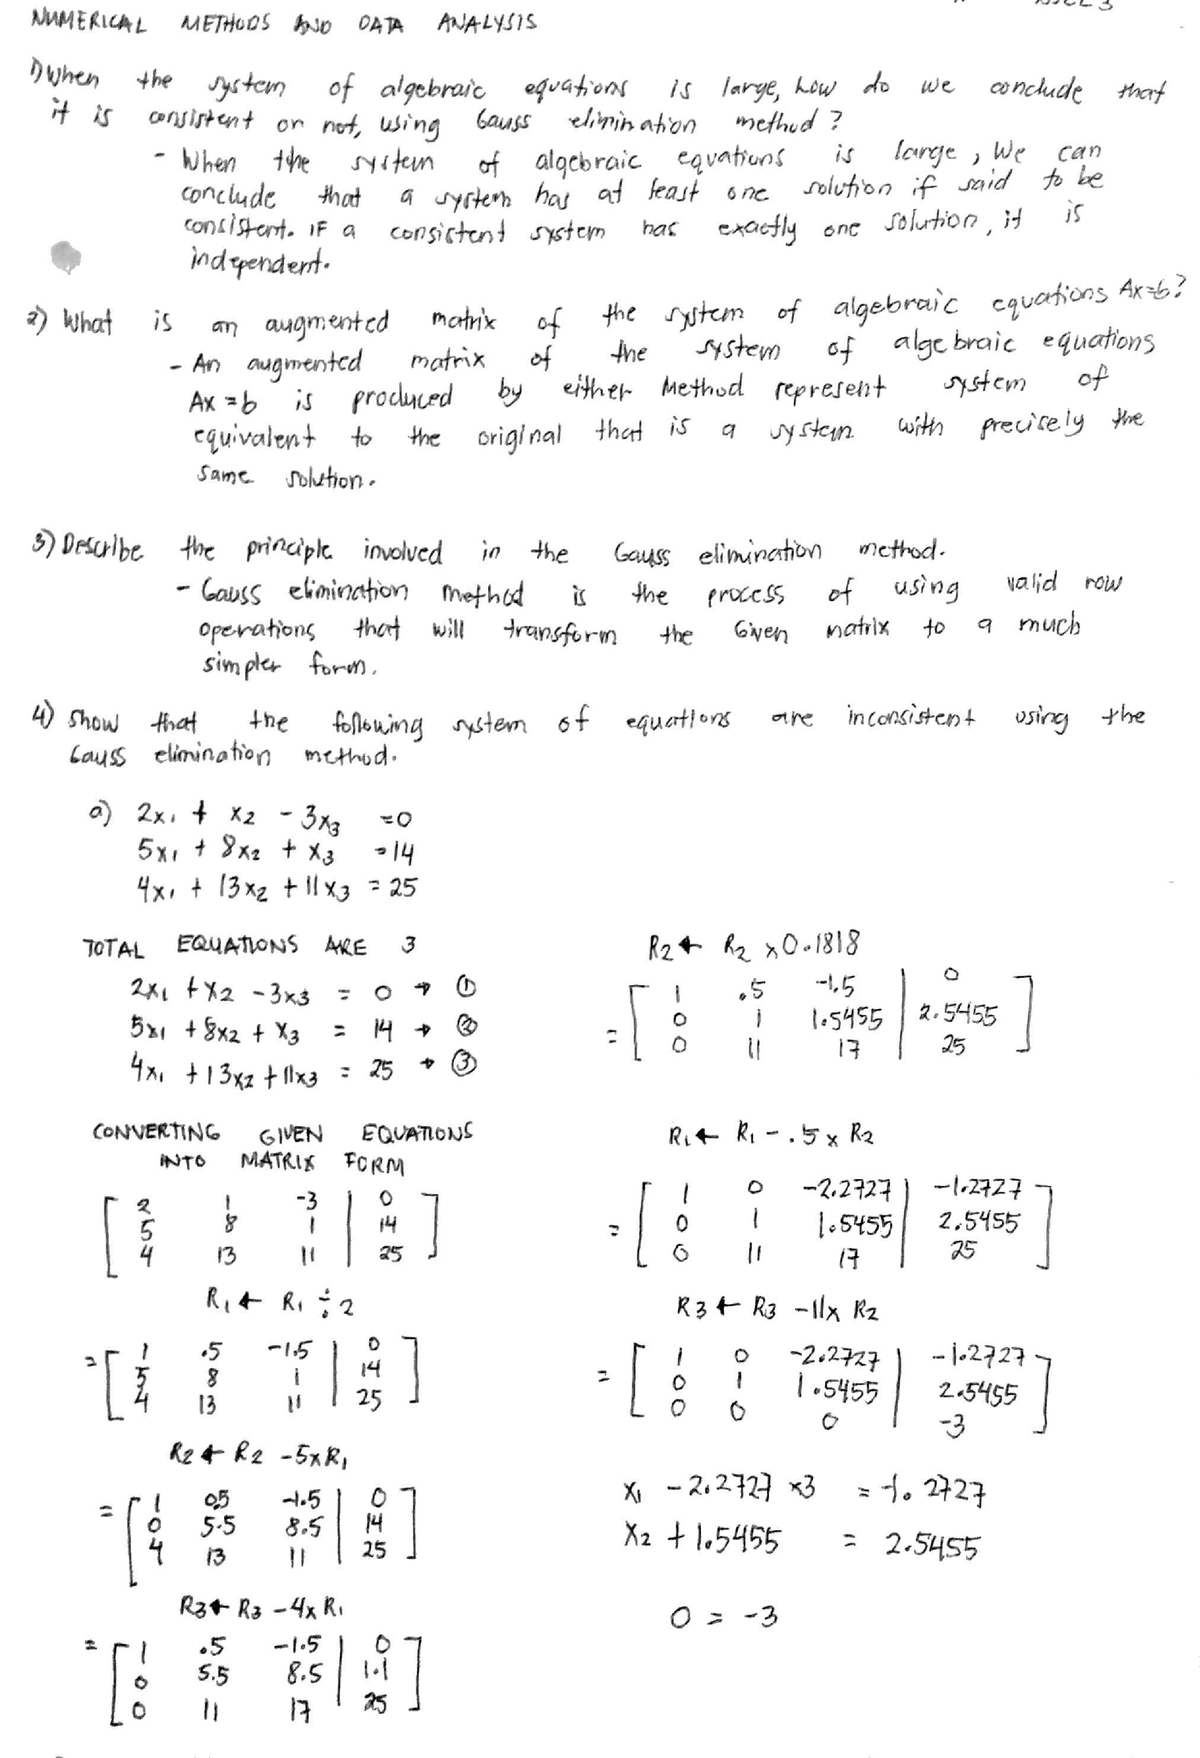 NUMERICAL METHODS AND DATA ANALYSIS
1) When the system of algebraic equations is large, how do we conclude that
it is consistent or not, using Gauss elimination method?
- When the system of algebraic equations is large, We can
conclude that a system has at least one solution if said to be
consistent. IF a consistent system has exactly one solution, it is
independent.
2) What is an augmented matrix of the system of algebraic equations Ax=b?
- An augmented matrix of the system of algebraic equations
Ax=b is produced by either Method represent system of
equivalent to the original that is a system with precisely the
same solution.
3) Describe the principle involved in the Gauss elimination method.
- Gauss elimination method is the process of using valid row
operations that will transform the Given matrix to a much
simpler form.
4) Show that the following system of equations are inconsistent using the
Gauss elimination method.
a) 2x1 + x2 - 3x3 = 0
5x1 + 8x2 + x3 = 14
4x1 + 13x2 + 11x3 = 25
TOTAL EQUATIONS ARE 3
2x1 + x2 - 3x3 = 0 → ①
5x1 + 8x2 + x3 = 14 → ②
4x1 + 13x2 + 11x3 = 25 → ③
CONVERTING GIVEN EQUATIONS
INTO MATRIX FORM
2 1 -3 | 0
5 8 1 | 14
4 13 11 | 25
R1 ← R1 ÷ 2
= 1 .5 -1.5 | 0
5 8 1 | 14
4 13 11 | 25
R2 ← R2 - 5xR1
= 1 0.5 -1.5 | 0
0 5.5 8.5 | 14
4 13 11 | 25
R3 ← R3 - 4x R1
= 1 .5 -1.5 | 0
0 5.5 8.5 | 1.1
0 11 17 | 25
R2 ← R2 x 0.1818
1 .5 -1.5 | 0
= 0 1 1.5455 | 2.5455
0 11 17 | 25
R1 ← R1 - .5 x R2
1 0 -2.2727 | -1.2727
= 0 1 1.5455 | 2.5455
0 11 17 | 25
R3 ← R3 - 11x R2
1 0 -2.2727 | -1.2727
= 0 1 1.5455 | 2.5455
0 0 0 | -3
x1 - 2.2727 x3 = -1.2727
x2 + 1.5455 = 2.5455
0 = -3